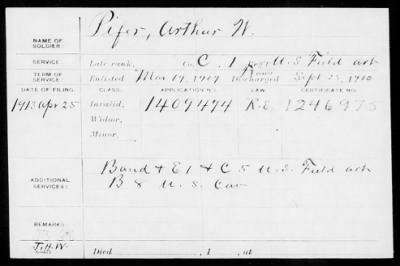 NAME OF SOLDIER: Pifer, Arthur W.
SERVICE: Late rank, Co. C, 1 Reg't U.S. Field Art
TERM OF SERVICE: Enlisted Mar 19, 1909 Discharged Sept 25, 1910
DATE OF FILING. CLASS. APPLICATION NO. LAW. CERTIFICATE NO.
1913 Apr 25 Invalid, 1409474 1246975
Widow,
Minor,
ADDITIONAL SERVICES: Band & E 1 & C 5 U.S. Field Art
B 8 U.S. Cav
REMARKS:
J.H.W. Died , 1 , at